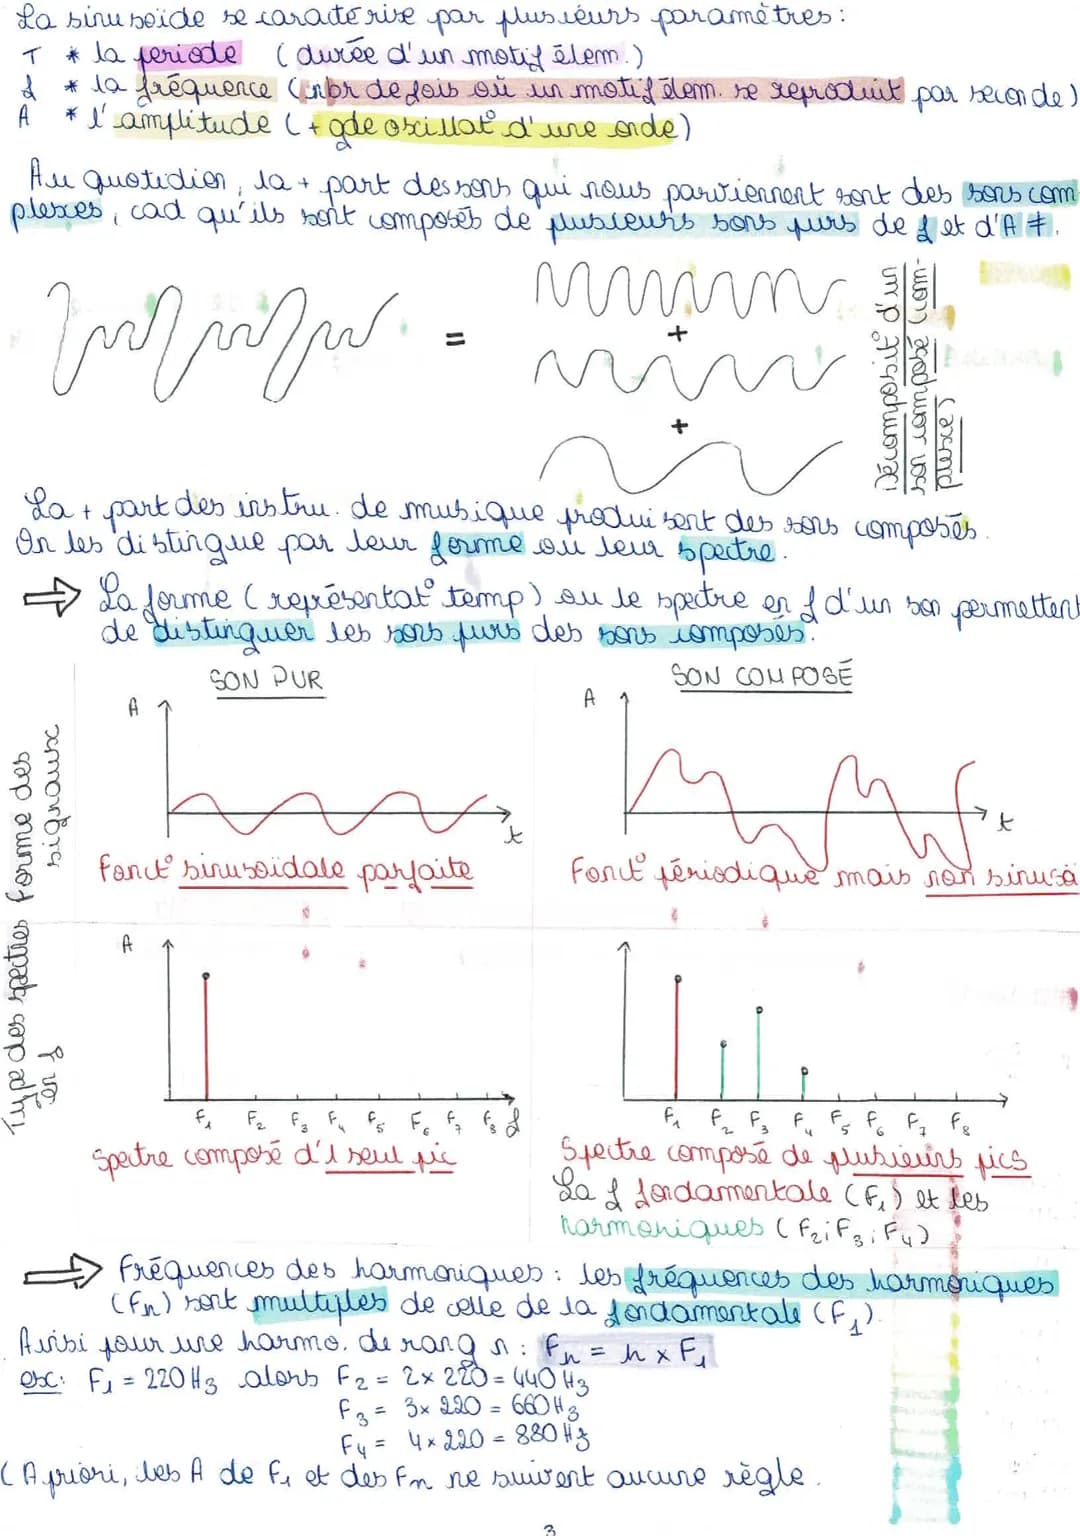 La sinusoïde se caractérise par plusieurs paramètres :
T * la periode ( durée d'un motif élem.)
f * la fréquence (nbr de fois où un motif élem. se reproduit par seconde)
A * l'amplitude ( + gde oscillat° d'une onde)
Au quotidien, la + part des sons qui nous parviennent sont des sons com
plexes, cad qu'ils sont composés de plusieurs sons purs de f et d'A ≠.
=
+
+
Décomposit° d'un
son composé (com-
plexe)
La + part des instru. de musique produisent des sons composés.
On les distingue par leur forme ou leur spectre.
⇒ La forme ( représentat° temp) ou le spectre en f d'un son permettent
de distinguer les sons purs des sons composés.
SON PUR
SON COMPOSÉ
Forme des
signaux
A
t
A
t
Fonct° sinusoïdale parfaite
Fonct° périodique mais non sinusoï
Type des spectres
en f
A
F₁ F₂ F₃ F₄ F₅ F₆ F₇ F₈ f
F₁ F₂ F₃ F₄ F₅ F₆ F₇ F₈
Spectre composé d'1 seul pic
Spectre composé de plusieurs pics
La f fondamentale (F₁) et les
harmoniques (F₂; F₃; F₄)
⇒ Fréquences des harmoniques : les fréquences des harmoniques
(Fn) sont multiples de celle de la fondamentale (F₁).
Ainsi pour une harmo. de rang n : Fn = n x F₁
ex: F₁ = 220 Hz alors F₂ = 2 x 220 = 440 Hz
F₃ = 3x 220 = 660 Hz
F₄ = 4 x 220 = 880 Hz
( A priori, les A de F₁ et des Fn ne suivent aucune règle.
3